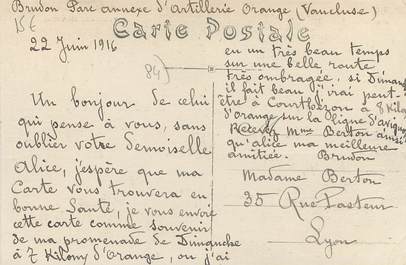 Brudon Parc annexe d'Artillerie Orange (Vaucluse)
15€
Carte Postale
22 Juin 1916
84)
Un bonjour de celui
qui pense à vous, sans
oublier votre Demoiselle
Alice, j'espère que ma
Carte vous trouvera en
bonne Santé, je vous envoie
cette carte comme souvenir
de ma promenade de Dimanche
à 7 Kilom d'Orange, ou j'ai
eu un très beau temps
sur une belle route
très ombragée, si Dimanche
il fait beau j'irai peut-
être à Courthézon à 8 Kilom
d'Orange sur la ligne d'Avignon
Recevez Mme Berton ainsi
qu'alice ma meilleure
amitiée. Brudon
Madame Berton
35 Rue Pasteur
Lyon